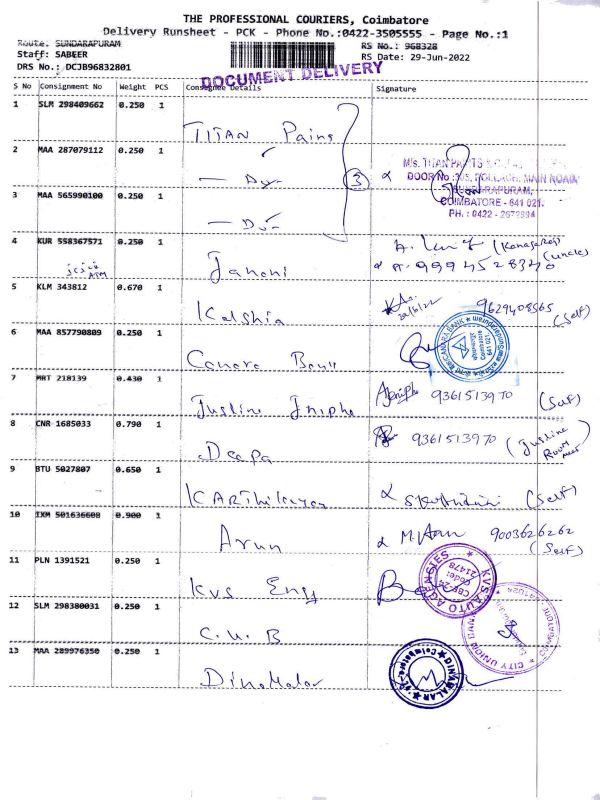 THE PROFESSIONAL COURIERS, Coimbatore
Delivery Runsheet - PCK - Phone No.:0422-3505555 - Page No.:1
Route: SUNDARAPURAM RS No.: 968328
Staff: SABEER RS Date: 29-Jun-2022
DRS No.: DCJB96832801
DOCUMENT DELIVERY
S No Consignment No Weight PCS Consignee Details Signature
1 SLM 298409662 0.250 1
TITAN Pains
2 MAA 287079112 0.250 1
3
M/s. TITAN PAINTS
DOOR No
MAIN ROAD
SUNDARAPURAM,
COIMBATORE - 641 021.
3 MAA 565990100 0.250 1
4 KUR 558367571 0.250 1
Janani
(uncle)
5 KLM 343812 0.670 1
Kalshia
9629408565 (Self)
6 MAA 857790809 0.250 1
Canara Bank
CANARA BANK
Coimbatore
641 021.
7 MRT 218139 0.430 1
9361513970 (Self)
8 CNR 1685033 0.790 1
Deepa
9361513970 (Justine Room
9 BTU 5027807 0.650 1
(Self)
10 IXM 501636608 0.900 1
Arun
9003626262 (Self)
11 PLN 1391521 0.250 1
KVS Engg
KVS AUTO AGENCIES
21478
12 SLM 298380031 0.250 1
C.U.B
CITY UNION BANK
13 MAA 289976350 0.250 1
DinaMalar
DINAMALAR
Coimbatore